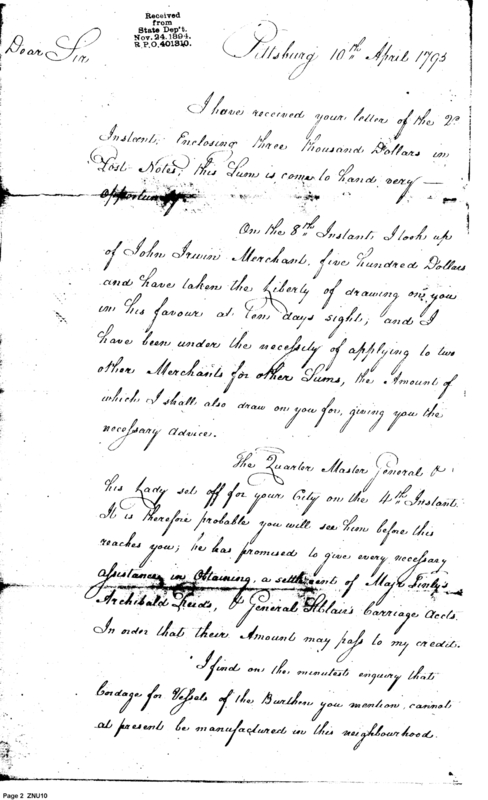 Received
from
State Dep't.
Nov. 24. 1894.
R.P.O. 401310.
Dear Sir
Pittsburg 10th April 1795
I have received your letter of the 2d
Instant, Enclosing three thousand Dollars in
Post Notes, this Sum is come to hand very —
opportunely
On the 8th Instant I took up
of John Irwin Merchant, five hundred Dollars
and have taken the Liberty of drawing on you
in his favour at Ten days sight; and I
have been under the necessity of applying to two
other Merchants for other Sums, the Amount of
which I shall also draw on you for, giving you the
necessary advice.
The Quarter Master General &
his Lady set off for your City on the 4th Instant.
It is therefore probable you will see him before this
reaches you; he has promised to give every necessary
assistance in Obtaining, a settlement of Majr
Archibald & General St Clair's Carriage Accts.
In order that their Amount may pass to my credit.
I find on the minutest enquiry that
Cordage for Vessels of the Burthen you mention cannot
at present be manufactured in this neighbourhood.
Page 2 ZNU10